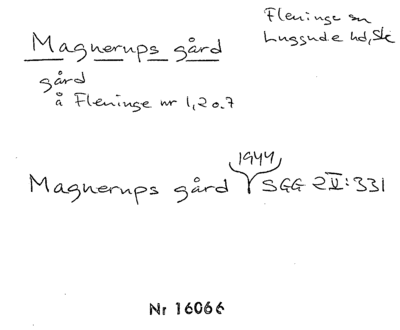 Fleninge sn
Luggude hd, Sk
Magnerups gård
gård
å Fleninge nr 1, 2 o. 7
1944
Magnerups gård SGG 2 II: 331
Nr 16066